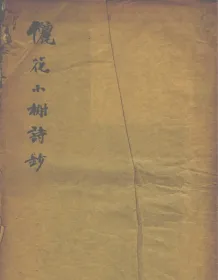 儷花小榭詩鈔